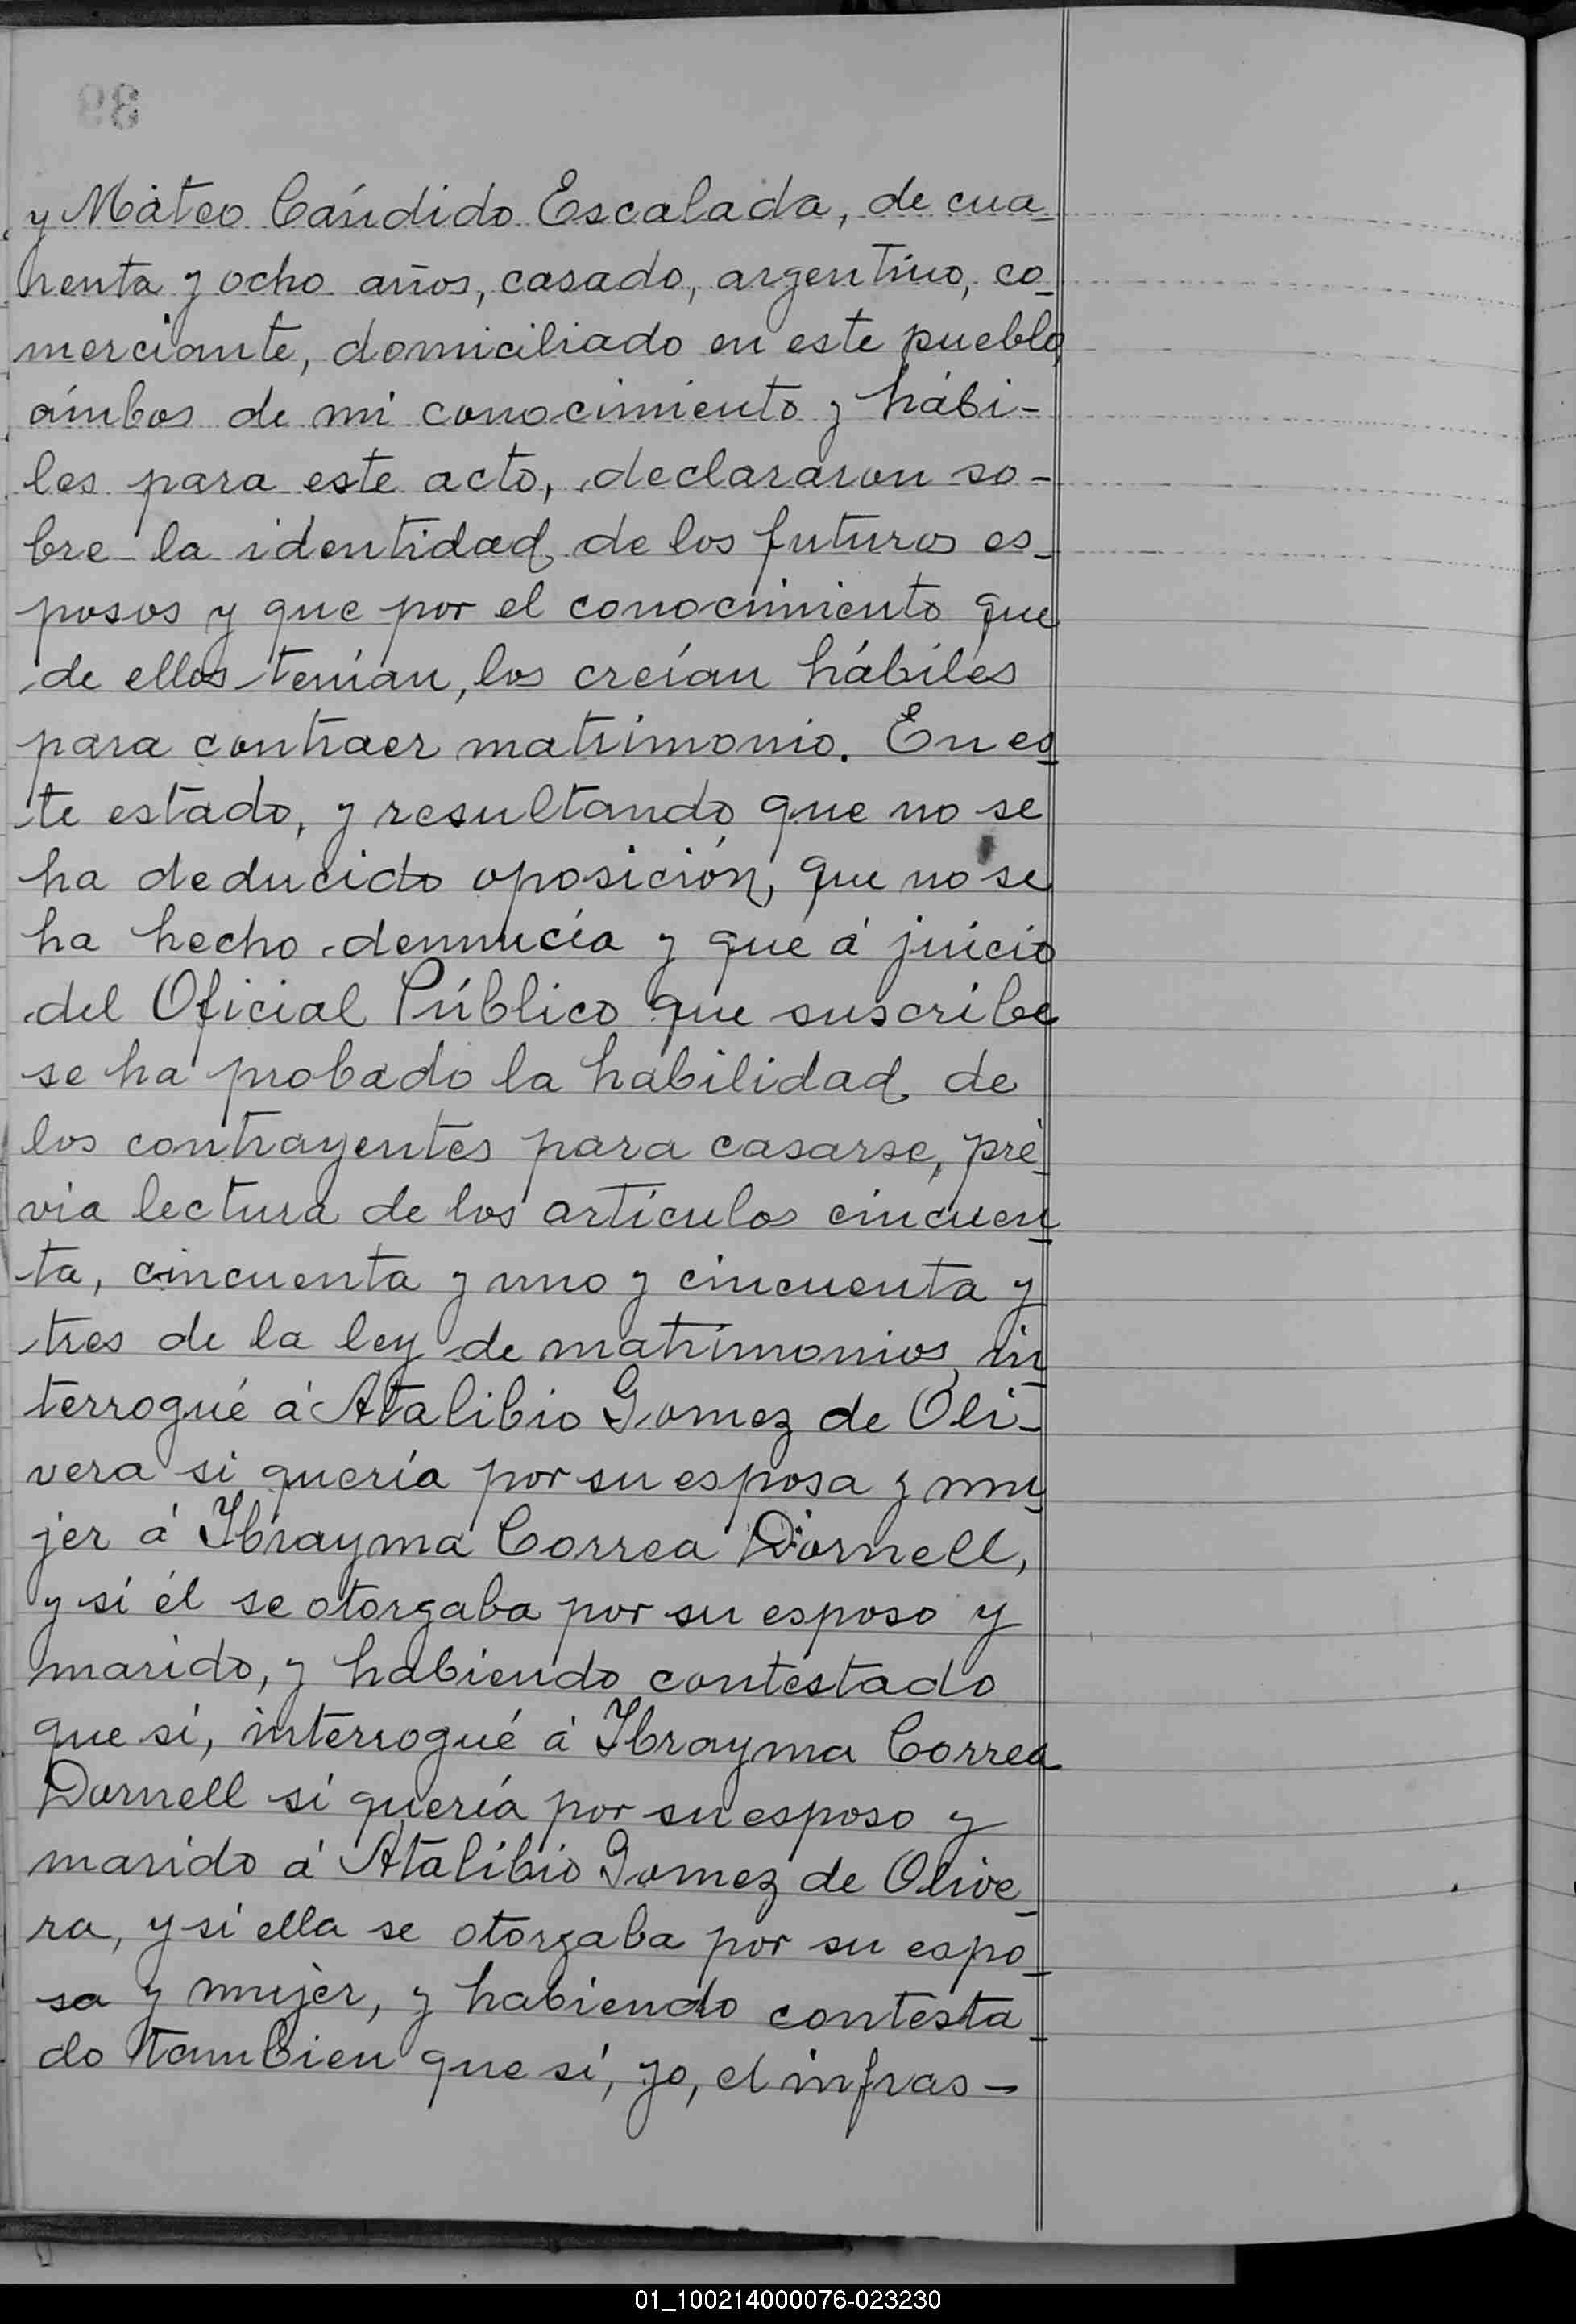 y Máteo Cándido Escalada, de cua-
renta y ocho años, casado, argentino, co-
merciante, domiciliado en este pueblo,
ámbos de mi conocimiento y hábi-
les para este acto, declararon so-
bre la identidad de los futuros es-
posos y que por el conocimiento que
de ellos tenían, los creían hábiles
para contraer matrimonio. En es-
te estado, y resultando que no se
ha deducido oposición, que no se
ha hecho denuncia y que á juicio
del Oficial Público que suscribe
se ha probado la habilidad de
los contrayentes para casarse, pré-
via lectura de los artículos cincuen-
ta, cincuenta y uno y cincuenta y
tres de la ley de matrimonios, in-
terrogué á Atalibio Gomez de Oli-
vera si quería por su esposa y mu-
jer á Ibrayma Correa Dornell,
y si él se otorgaba por su esposo y
marido, y habiendo contestado
que sí, interrogué á Ibrayma Correa
Dornell si quería por su esposo y
marido á Atalibio Gomez de Olive-
ra, y si ella se otorgaba por su espo-
sa y mujer, y habiendo contesta-
do tambien que sí, yo, el infras-
01_100214000076-023230